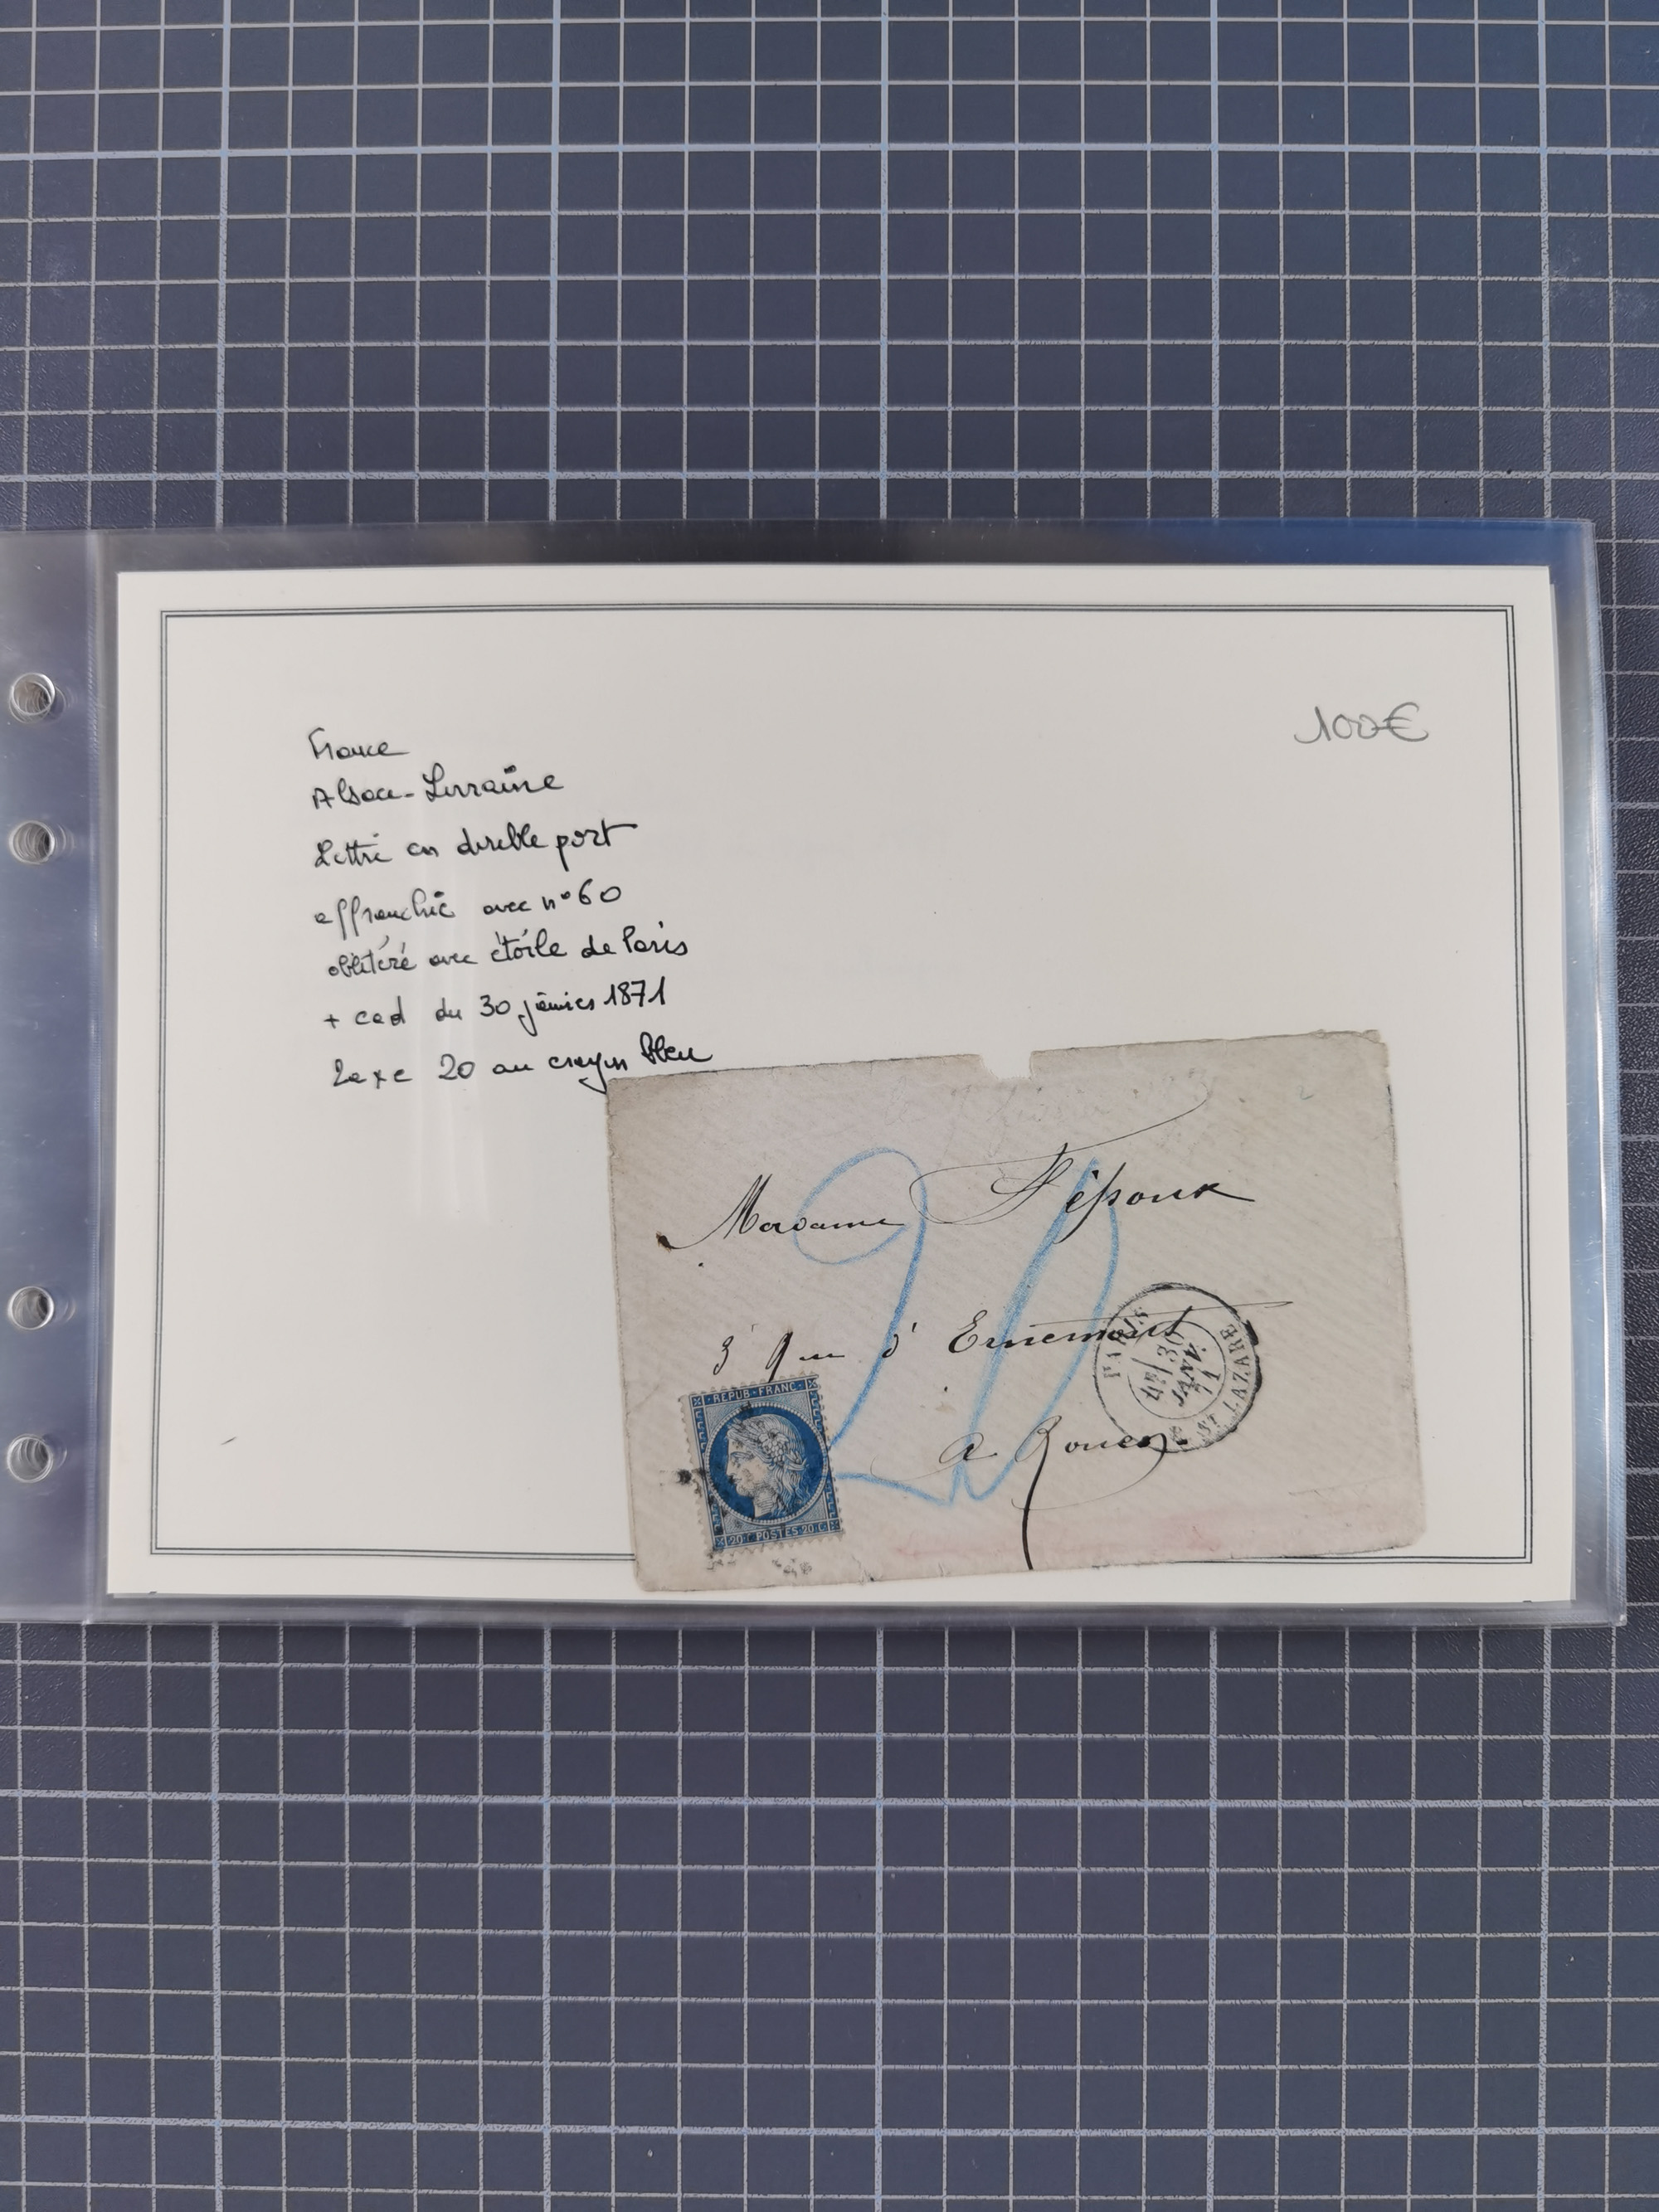 France
100€
Alsace-Lorraine
Lettre en double port
affranchie avec n°60
oblitéré avec étoile de Paris
+ cad du 30 janvier 1871
Taxe 20 au crayon bleu
20
Madame
3 Rue d'Ernemont
a Rouen
PARIS
ST LAZARE
30
JANV
71
REPUB·FRANC
20 C POSTES 20 C